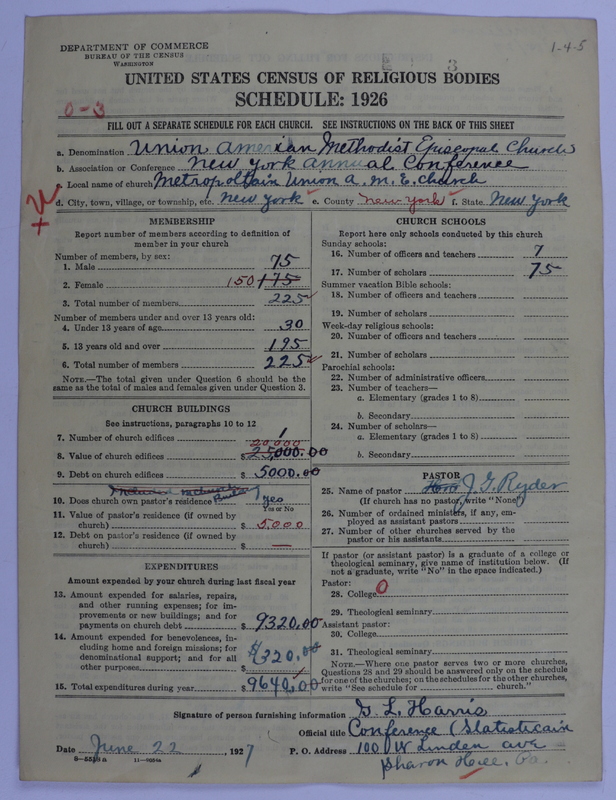 DEPARTMENT OF COMMERCE
BUREAU OF THE CENSUS
WASHINGTON
1-4-5
3
UNITED STATES CENSUS OF RELIGIOUS BODIES
SCHEDULE: 1926
0-3
FILL OUT A SEPARATE SCHEDULE FOR EACH CHURCH. SEE INSTRUCTIONS ON THE BACK OF THIS SHEET
a. Denomination Union American Methodist Episcopal Church
b. Association or Conference New York Annual Conference
c. Local name of church Metropoltain Union A. M. E. Church
d. City, town, village, or township, etc. New York e. County New York f. State New York
MEMBERSHIP
Report number of members according to definition of member in your church
Number of members, by sex:
1. Male 75
2. Female 150 175
3. Total number of members 225
Number of members under and over 13 years old:
4. Under 13 years of age 30
5. 13 years old and over 195
6. Total number of members 225
NOTE.—The total given under Question 6 should be the same as the total of males and females given under Question 3.
CHURCH BUILDINGS
See instructions, paragraphs 10 to 12
7. Number of church edifices 1
20,000
8. Value of church edifices $ 25,000.00
9. Debt on church edifices $ 5000.00
10. Does church own pastor's residence? yes
Yes or No
11. Value of pastor's residence (if owned by church) $ 5,000
12. Debt on pastor's residence (if owned by church) $ —
EXPENDITURES
Amount expended by your church during last fiscal year
13. Amount expended for salaries, repairs, and other running expenses; for improvements or new buildings; and for payments on church debt $ 9320.00
14. Amount expended for benevolences, including home and foreign missions; for denominational support; and for all other purposes $ 320.00
15. Total expenditures during year $ 9640.00
CHURCH SCHOOLS
Report here only schools conducted by this church
Sunday schools:
16. Number of officers and teachers 7
17. Number of scholars 75
Summer vacation Bible schools:
18. Number of officers and teachers
19. Number of scholars
Week-day religious schools:
20. Number of officers and teachers
21. Number of scholars
Parochial schools:
22. Number of administrative officers
23. Number of teachers—
a. Elementary (grades 1 to 8)
b. Secondary
24. Number of scholars—
a. Elementary (grades 1 to 8)
b. Secondary
PASTOR
25. Name of pastor J. G. Ryder
(If church has no pastor, write "None")
26. Number of ordained ministers, if any, employed as assistant pastors
27. Number of other churches served by the pastor or his assistants
If pastor (or assistant pastor) is a graduate of a college or theological seminary, give name of institution below. (If not a graduate, write "No" in the space indicated.)
Pastor:
28. College 0
29. Theological seminary
Assistant pastor:
30. College
31. Theological seminary
NOTE.—Where one pastor serves two or more churches, Questions 28 and 29 should be answered only on the schedule for one of the churches; on the schedules for the other churches, write "See schedule for church."
Signature of person furnishing information G. L. Harris
Official title Conference (Statisticain
Date June 22, 1927 P. O. Address 100 W Linden ave
8-5538 A
Sharon Hill, Pa.